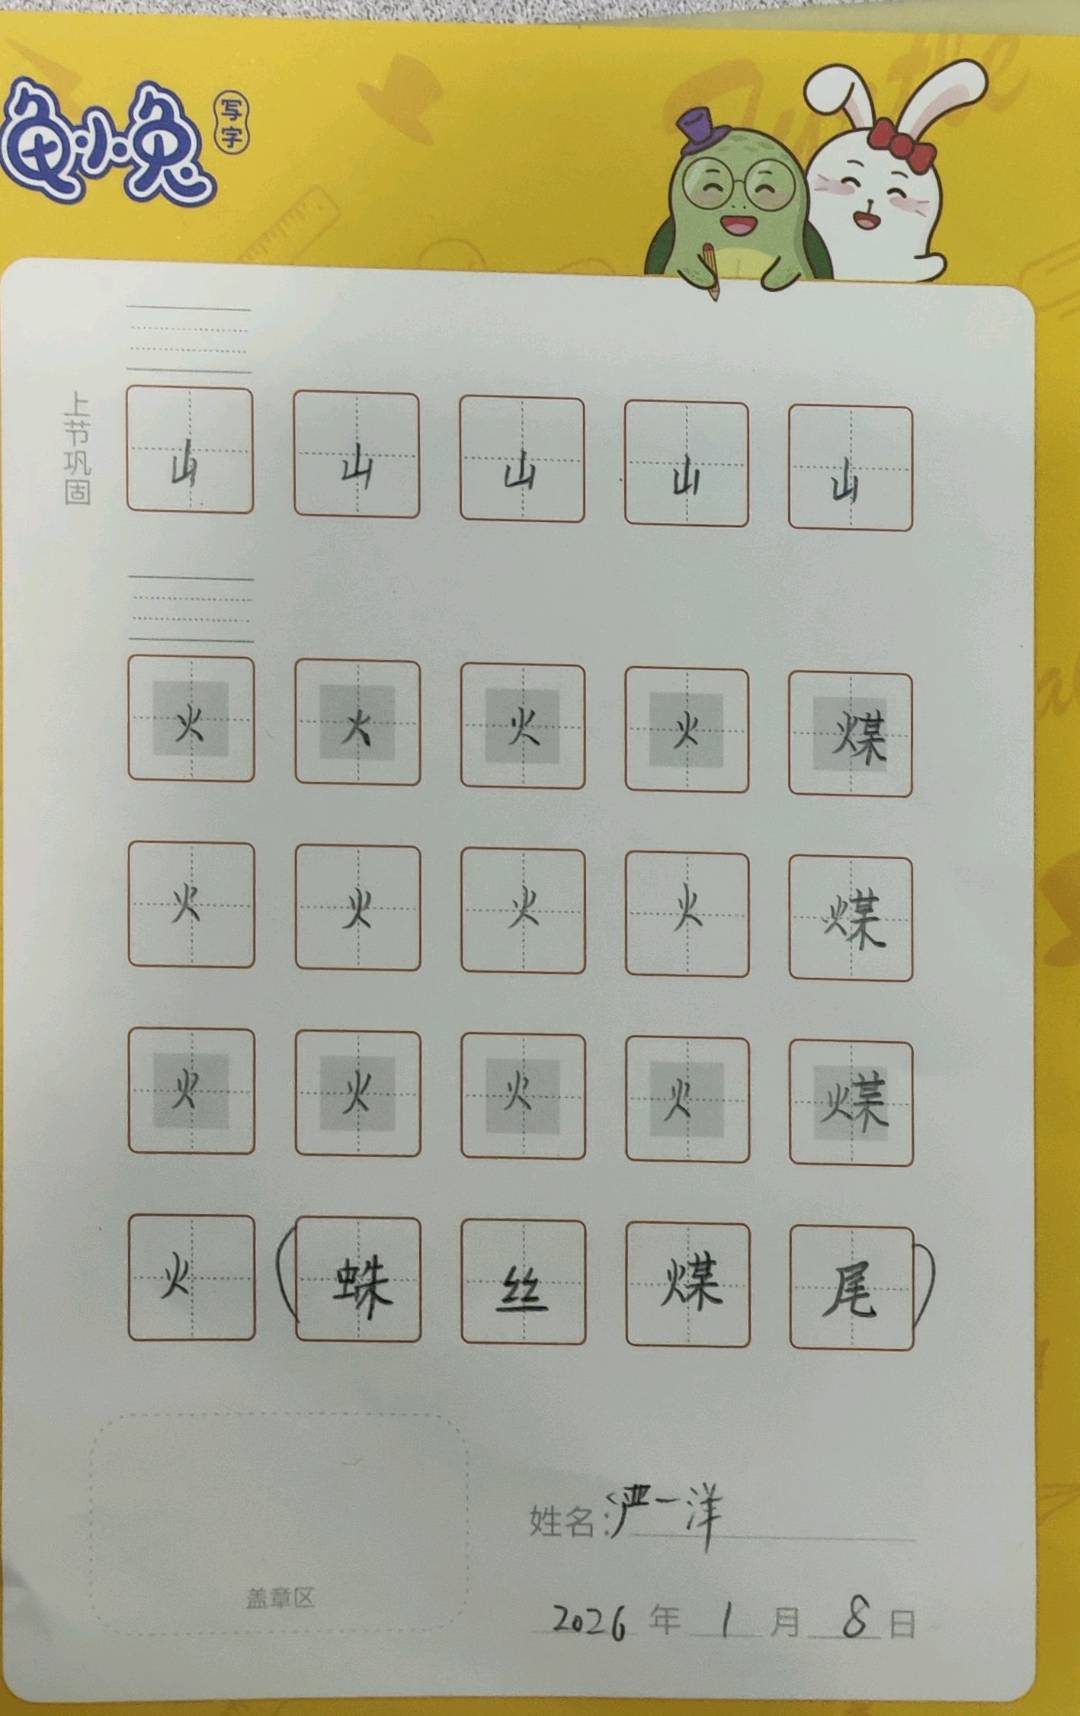 龟小兔 写字
上节巩固
山 山 山 山 山
火 火 火 火 煤
火 火 火 火 煤
火 火 火 火 煤
火 (蛛 丝 煤 尾)
姓名:严一洋
盖章区
2026 年 1 月 8 日